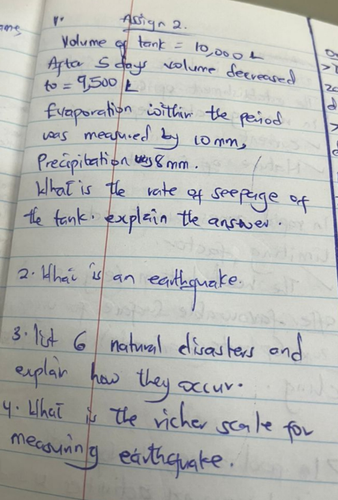 Assign 2.
1. Volume of tank = 10,000 L
After 5 days volume decreased
to = 9,500 L
Evaporation within the period
was measured by 10mm,
Precipitation was 8mm.
What is the rate of seepage of
the tank. explain the answer.
2. What is an earthquake.
3. list 6 natural disasters and
explain how they occur.
4. What is the richer scale for
measuring earthquake.